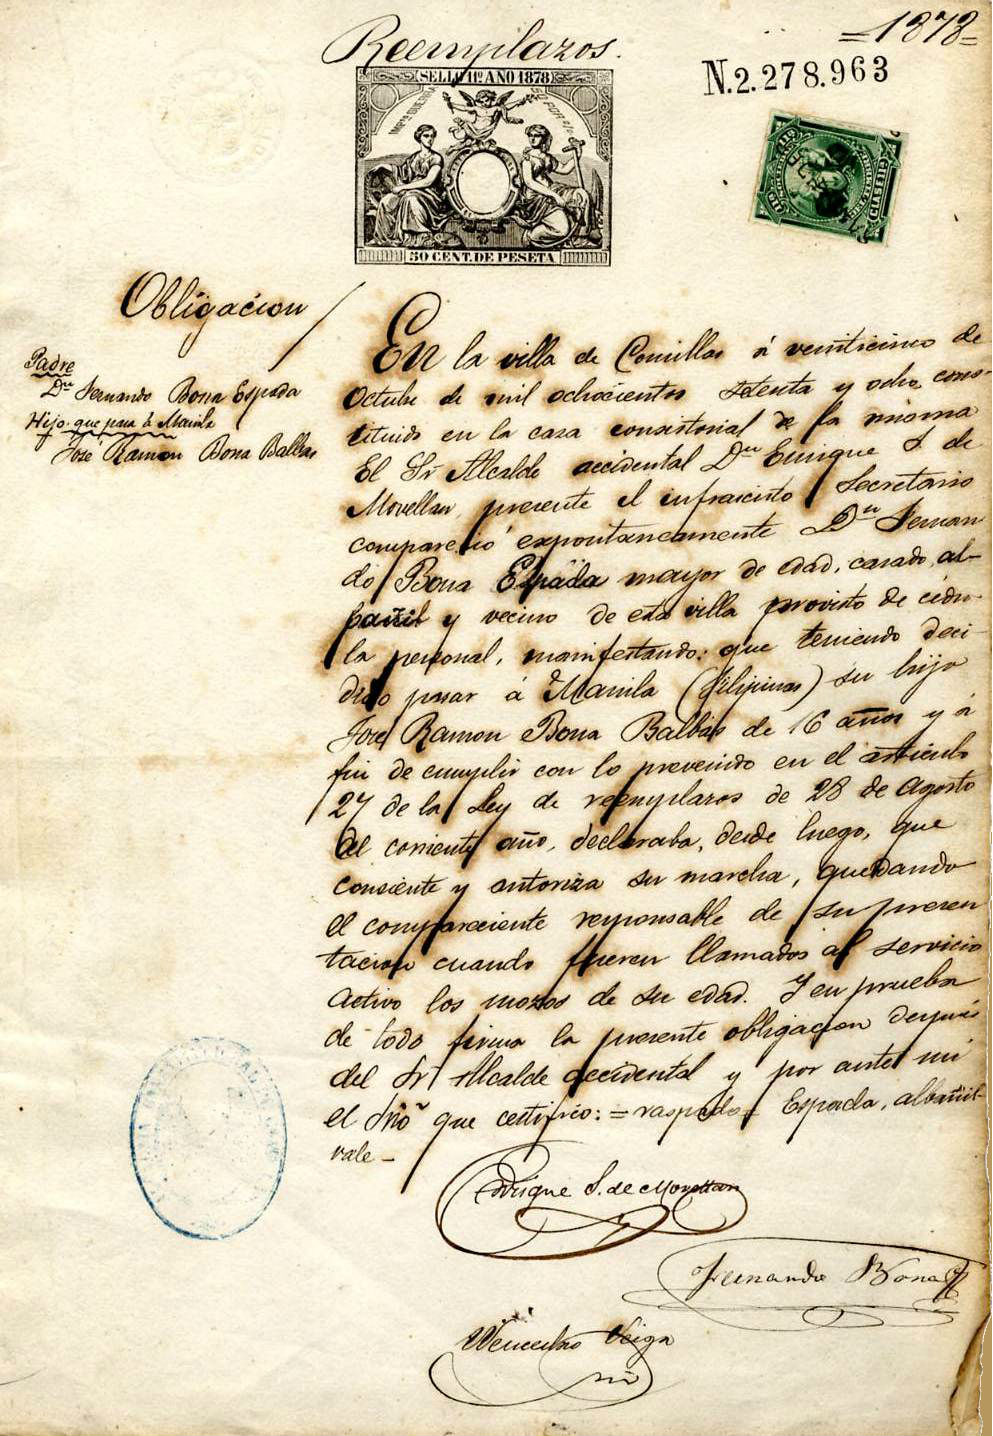 Reemplazos.
=1878=
SELLO 11º AÑO 1878
N.2.278.963
50 CENT. DE PESETA
Obligacion
Padre
Dn Fernando Bona Espada
Hijo que pasa á Manila
José Ramon Bona Balbas
En la villa de Comillas á veinticinco de
Octubre de mil ochocientos setenta y ocho, cons-
tituido en la casa consistorial de la misma
El Sr Alcalde accidental Dn Enrique S. de
Movellan, presente el infrascrito Secretario
compareció expontaneamente Dn Fernan
do Bona Espada mayor de edad, casado, al-
bañil y vecino de esta villa provisto de cédu-
la personal, manifestando: que teniendo deci-
dido pasar á Manila (Filipinas) su hijo
José Ramon Bona Balbás de 16 años y á
fin de cumplir con lo prevenido en el artículo
27 de la Ley de reemplazos de 28 de Agosto
del corriente año, declaraba, desde luego, que
consiente y autoriza su marcha, quedando
el compareciente responsable de su presen
tacion cuando fueren llamados al servicio
activo los mozos de su edad. Y en prueba
de todo firma la presente obligacion después
del Sr Alcalde accidental y por ante mi
el Srio que certifico: = raspado = Espada, albañil
vale -
Enrique S. de Movellan
Fernando Bona
Wenceslao Veiga
srio